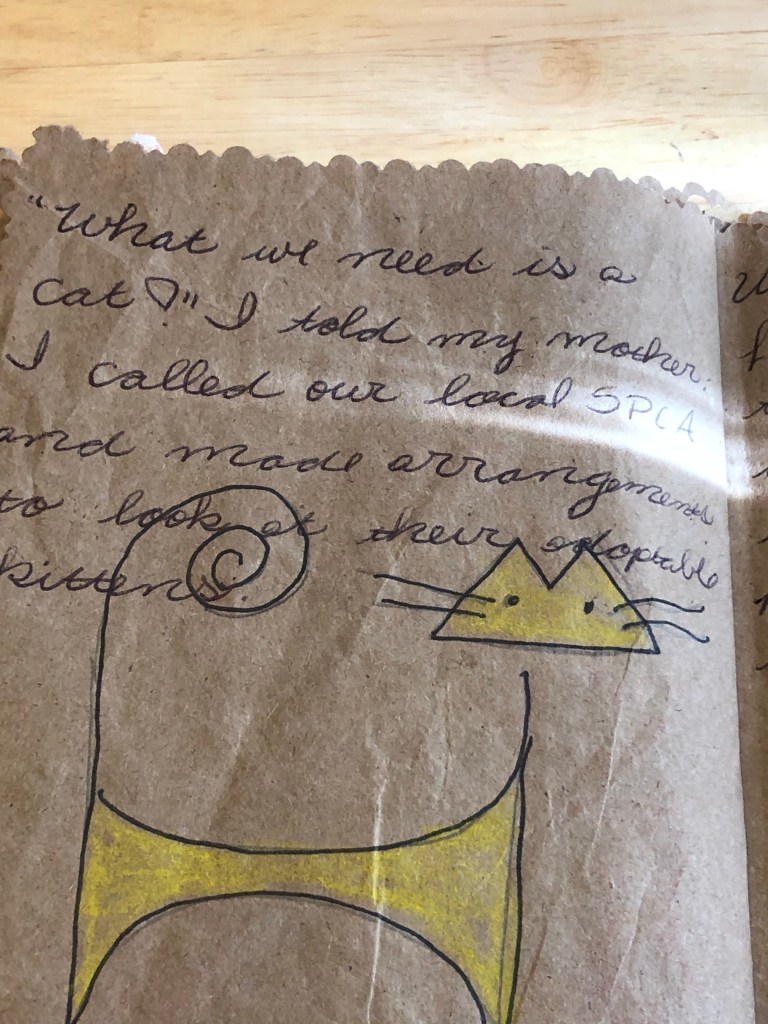 "What we need is a
cat!" I told my mother.
I called our local SPCA
and made arrangements
to look at their adoptable
kittens.